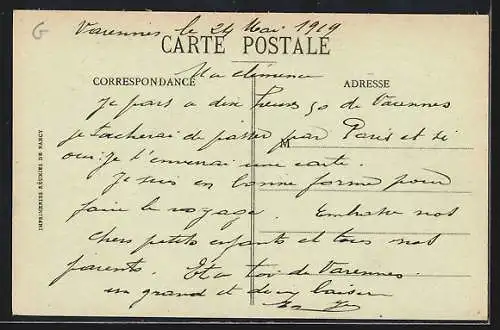 G
Varennes le 24 Mai 1919
CARTE POSTALE
Ma clémence
CORRESPONDANCE
ADRESSE
Je pars a dix heures 50 de Varennes
je tacherai de passer par Paris et si
M
oui je t'enverrai une carte.
Je suis en bonne forme pour
faire le voyage. Embrasse nos
chers petits enfants et tous nos
parents. Et a toi de Varennes
un grand et doux baiser
IMPRIMERIES RÉUNIES DE NANCY